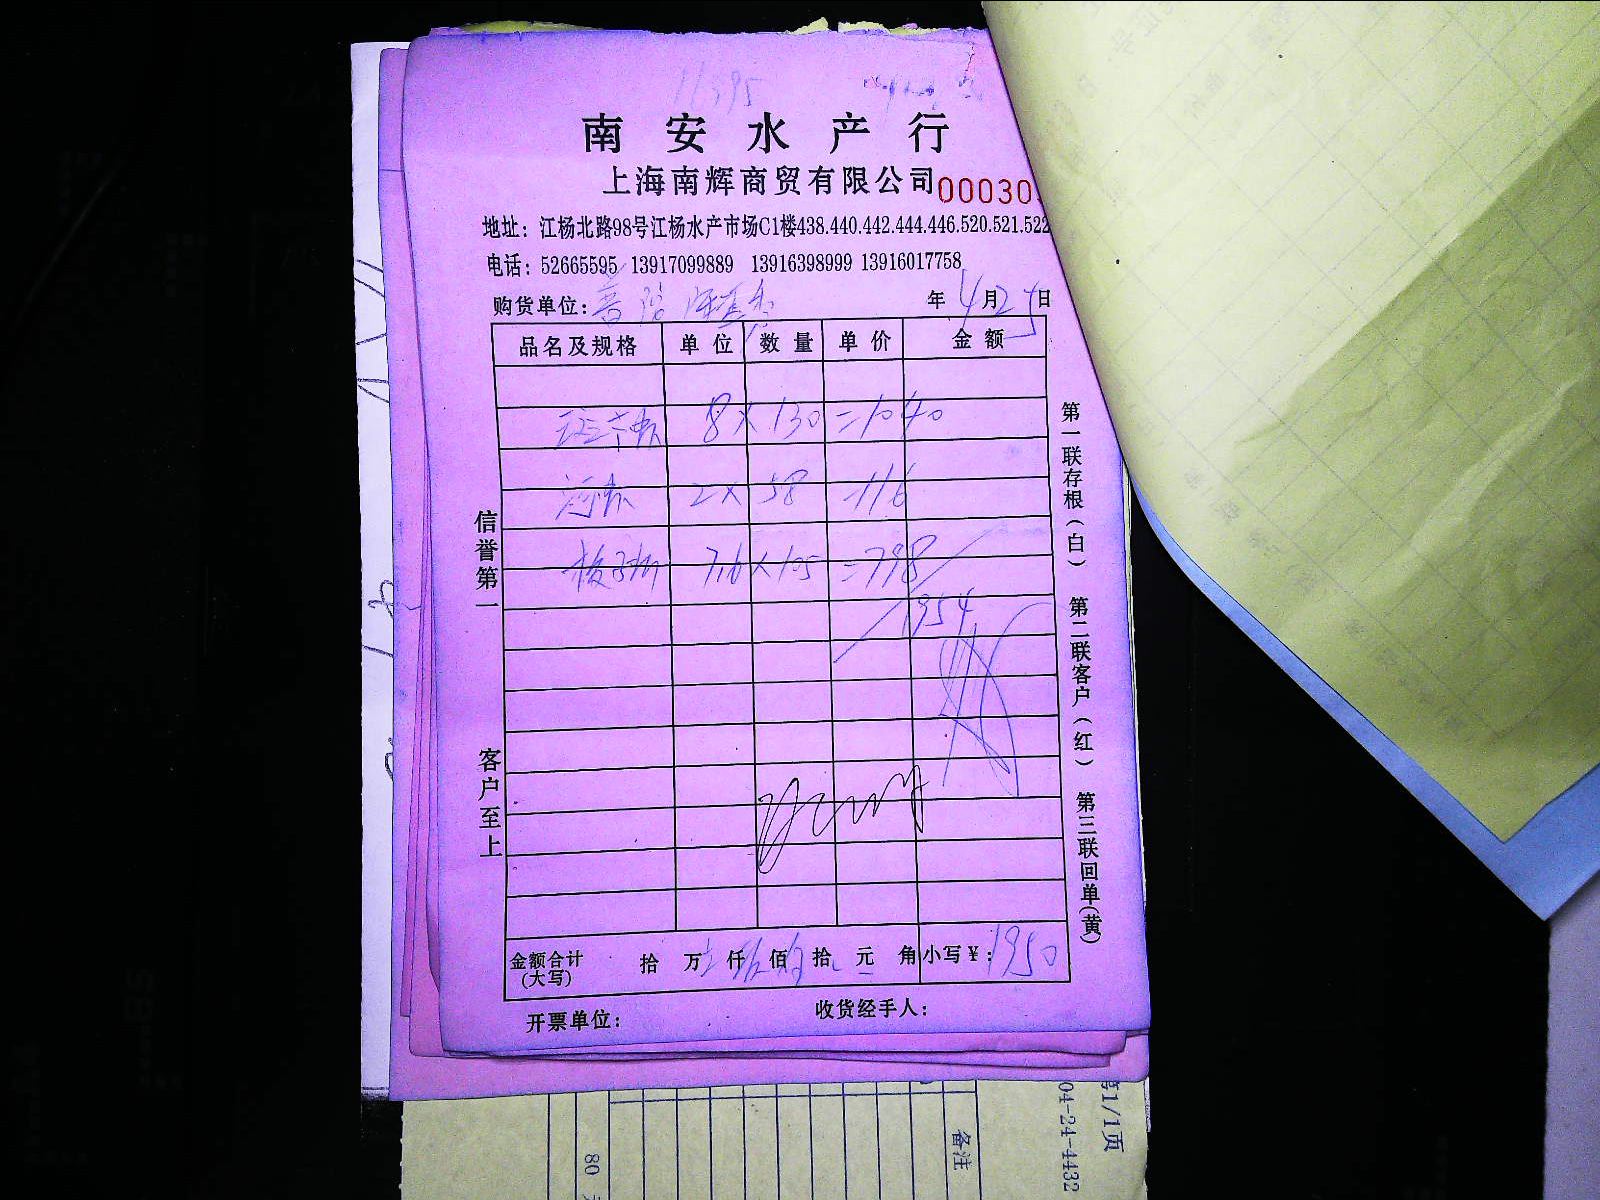 南安水产行
上海南辉商贸有限公司00030
地址：江杨北路98号江杨水产市场C1楼438.440.442.444.446.520.521.522
电话：52665595 13917099889 13916398999 13916017758
购货单位：普陀 年4月25日
品名及规格 单位 数量 单价 金额
8×130=1040
2×58=116
7.6×105=798
1954
信誉第一
客户至上
第一联存根(白) 第二联客户(红) 第三联回单(黄)
金额合计(大写) 拾 万 仟 佰 拾 元 角 小写￥：1950
开票单位： 收货经手人：
备注
80
第1/1页
04-24-4432